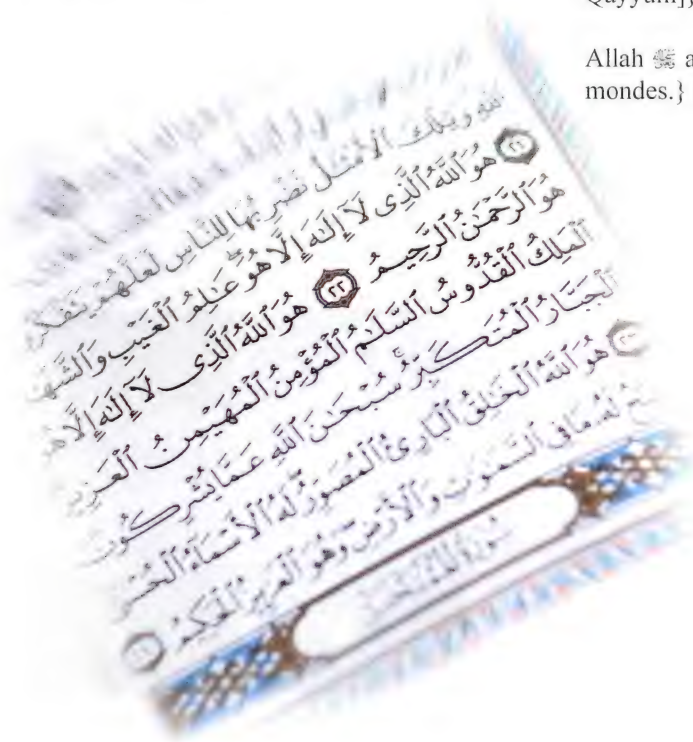 Allah ﷻ a
mondes.}
وَتِلْكَ ٱلْأَمْثَـٰلُ نَضْرِبُهَا لِلنَّاسِ لَعَلَّهُمْ يَتَفَكَّرُ
٢١ هُوَ ٱللَّهُ ٱلَّذِى لَآ إِلَـٰهَ إِلَّا هُوَ عَـٰلِمُ ٱلْغَيْبِ وَٱلشَّهَـ
هُوَ ٱلرَّحْمَـٰنُ ٱلرَّحِيمُ ٢٢ هُوَ ٱللَّهُ ٱلَّذِى لَآ إِلَـٰهَ إِلَّا هُوَ
ٱلْمَلِكُ ٱلْقُدُّوسُ ٱلسَّلَـٰمُ ٱلْمُؤْمِنُ ٱلْمُهَيْمِنُ ٱلْعَزِيزُ
ٱلْجَبَّارُ ٱلْمُتَكَبِّرُ سُبْحَـٰنَ ٱللَّهِ عَمَّا يُشْرِكُونَ
٢٣ هُوَ ٱللَّهُ ٱلْخَـٰلِقُ ٱلْبَارِئُ ٱلْمُصَوِّرُ لَهُ ٱلْأَسْمَآءُ ٱلْحُسْـ
لَهُۥ مَا فِى ٱلسَّمَـٰوَٰتِ وَٱلْأَرْضِ وَهُوَ ٱلْعَزِيزُ ٱلْحَكِيمُ
سُورَةُ المُمْتَحَنَةِ